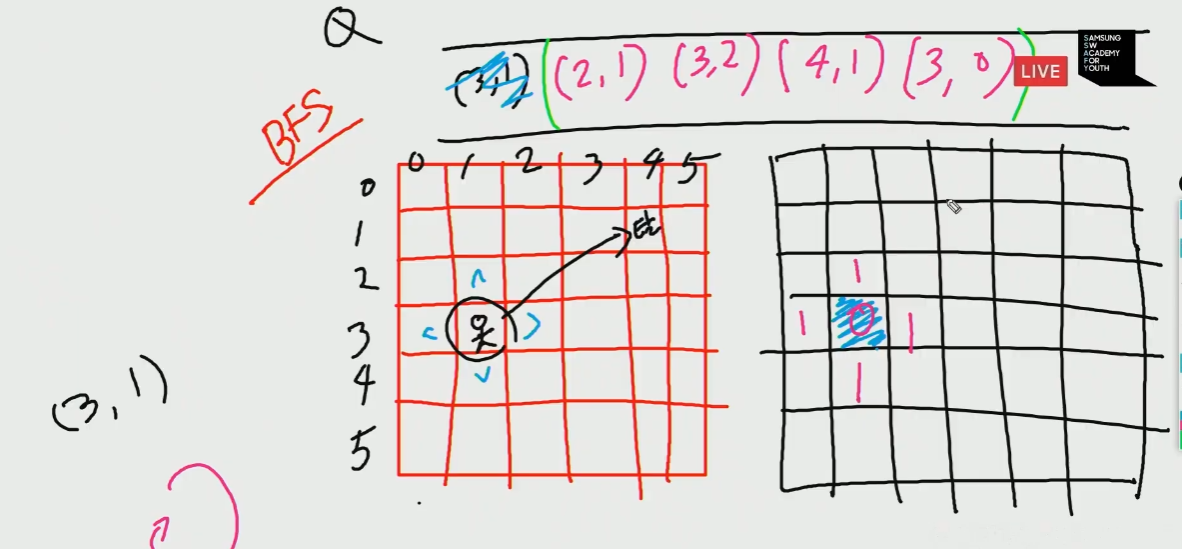 Q
(3,1) (2,1) (3,2) (4,1) (3,0)
LIVE
SAMSUNG
SW
ACADEMY
FOR
YOUTH
BFS
0 1 2 3 4 5
0
1 탈
2
3
4
5
1
1 0 1
1
(3,1)